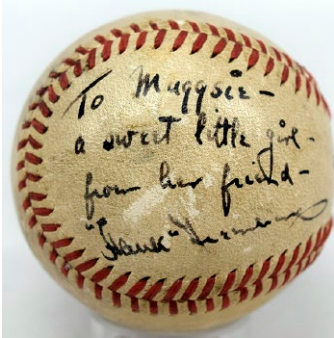 To Muggsie -
a sweet little girl -
from her friend -
"Hank" Greenberg